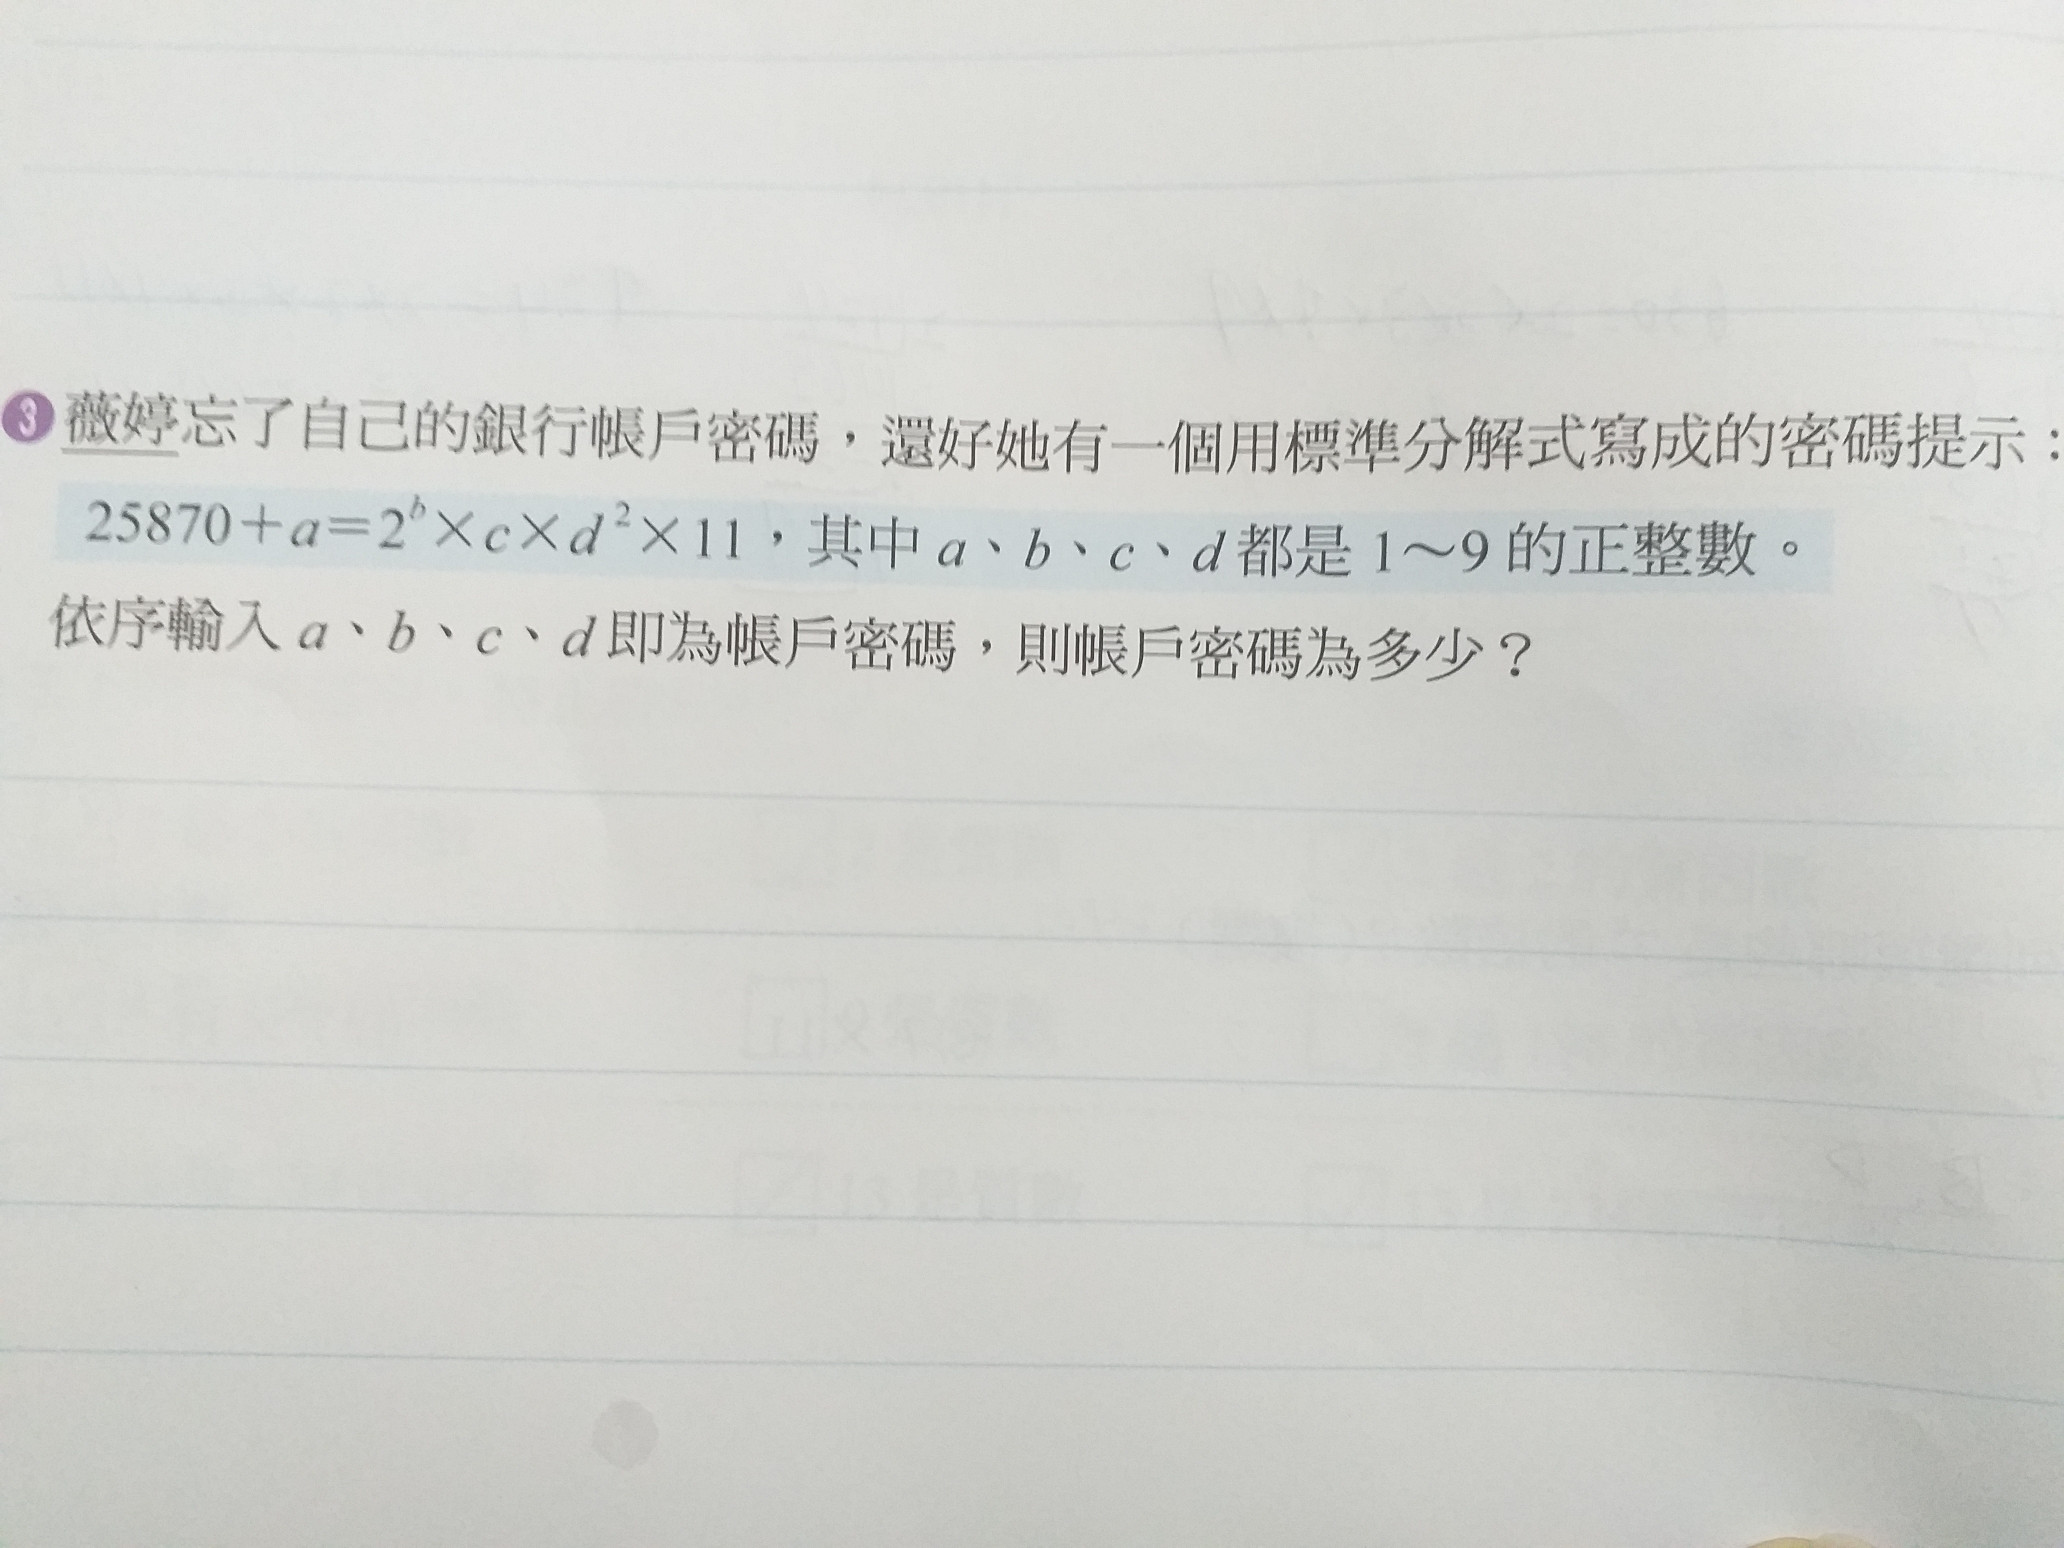 3 薇婷忘了自己的銀行帳戶密碼，還好她有一個用標準分解式寫成的密碼提示：
25870＋a＝2ᵇ×c×d²×11，其中 a、b、c、d 都是 1～9 的正整數。
依序輸入 a、b、c、d 即為帳戶密碼，則帳戶密碼為多少？